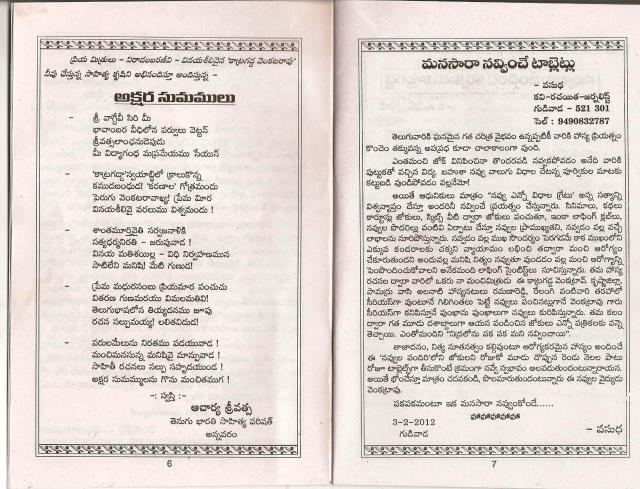 ప్రియ మిత్రులు - నిరాడంబరజీవి - వినయశీలినైన 'కాట్రగడ్డ వెంకటరావు'
నీవు చేస్తున్న సాహిత్య కృషిని అభినందిస్తూ అందిస్తున్న -
అక్షర సుమములు
- శ్రీ వాగ్దేవీ సిరి మీ
భావాంబర వీధిలోన పర్వులు వెట్టన్
శ్రీవత్సలాంఛనుడెపుడు
మీ విద్యాగంధ మప్రమేయము సేయున్
- 'కాట్రగడ్డా'న్వయాబ్ధిలో క్రాలుకొన్న
కుముదబంధుడ! 'కరణాల' గోత్రమందు
పెరుగు వెంకటరావాఖ్య! ప్రేమ మీర
వినయశీలివై వరలుము విశ్వమందు !
- శాంతమూర్తివైతి సర్వజనాళికి
సత్యధర్మనిరతి - జరుపువాడ !
వినయ మతిశయిల్ల - విధి నిర్వహణమున
సాటిలేని మనిషి! మేటి గుణుడ!
- ప్రేమ మధురసంబు ప్రియమార పంచుచు
వితరణ గుణమరయు విమలమతివి!
తెలుగుభాషలోన తియ్యదనము జూపు
రచన సల్పుమయ్య! లలితవిదుడ!
- పరులమేలును నిరతము పదయువాడ !
మంచిమనసున్న మనిషివై మాన్యువాడ !
సాహితీ రచనలు సల్పు సహృదయుండ !
అక్షర సుమములను గొను మంచితముగ !
-: స్వస్తి :-
ఆచార్య శ్రీవత్స
తెనుగు భారతి సాహిత్య పరిషత్
అన్నవరం
6
మనసారా నవ్వించే టాబ్లెట్లు
- వసుధ
కవి-రచయిత-జర్నలిస్ట్
గుడివాడ - 521 301
సెల్ : 9490832787
తెలుగువారికి ఘనమైన గత చరిత్ర వైభవం ఉన్నప్పటికీ వారికి హాస్య ప్రియత్వం
కొంచెం తక్కువన్న అపప్రధ కూడా చాలాకాలంగా వుంది.
ఎంతమంచి జోక్ వినిపించినా తొందరపడి నవ్వకపోవడం అనేది వారికి
పుట్టుకతో వచ్చిన విద్య. బహుశా నవ్వు నాలుగు విధాల చేటన్న పూర్వికుల మాటకు
కట్టుబడి వుండిపోవడం వల్లనేమో!
అయితే ఆధునికులు మాత్రం "నవ్వు ఎన్నో విధాల గ్రేటు" అన్న సత్యాన్ని
విశ్వవ్యాప్తం చేస్తూ అందరినీ నవ్వించే ప్రయత్నం చేస్తున్నారు. సినిమాలు, కథలు
కార్టూన్లు జోకులు, స్కిట్స్ వీటి ద్వారా జోకులు పంచుతూ, ఇంకా లాఫింగ్ క్లబ్‌లు,
నవ్వుల పొదరిల్లు వంటివి ఏర్పాటు చేస్తూ నవ్వుల ప్రాముఖ్యతని, నవ్వడం వల్ల వచ్చే
లాభాలను నూరిపోస్తున్నారు. నవ్వడం వల్ల ముఖ సౌందర్యం పెరగడమే కాక ముఖంలోని
ఎక్కువ కండరాలకు చక్కని వ్యాయామం లభించి తద్వారా మంచి ఆరోగ్యం
చేకూరుతుందని అందువల్ల మనిషి నిత్యం నవ్వుతూ వుండడం వల్ల మంచి ఆరోగ్యాన్ని
పెంపొందించుకోవాలని అనేకమంది లాఫింగ్ సైంటిస్ట్‌లు సూచిస్తున్నారు. తమ హాస్య
రచనల ద్వారా వారిలో ఒకరు నా మంచిమిత్రుడు ఈ కాట్రగడ్డ వెంకట్రావ్. కృష్ణాజిల్లా,
పామర్రు వాసి అలనాటి హాస్యనటులు రమణారెడ్డి, రేలంగి వంటివారి తరహాలో
సీరియస్‌గా వుంటూనే గిలిగింతలు పెట్టే నవ్వులు పంచినట్లుగానే వెంకట్రావు గారు
సీరియస్‌గా కనిపిస్తూనే పుంఖాను పుంఖాలుగా నవ్వులు కురిపిస్తున్నారు. తమ కలం
ద్వారా గత మూడు దశాబ్దాలుగా ఆయన పండించిన జోకులు ఎన్నో పత్రికలకు వన్నె
తెచ్చాయి. ఎంతోమందిని "నిద్రలోను పక పక మని నవ్వించాయి".
తాజాదనం, నిత్య నూతనత్వం కల్గివుంటూ ఆరోగ్యకరమైన హాస్యం అందించే
ఈ 'నవ్వుల పందిరి'లోని జోకులని రోజుకో మూడు చొప్పున రెండు నెలల పాటు
రోజూ టాబ్లెట్స్‌గా తీసుకుంటే క్రమంగా నవ్వే స్వభావం అలవడుతుందంటున్నారాయన.
అయితే భోంచేస్తూ మాత్రం చదవకండి, పొలమారుతుందంటున్నారు ఈ నవ్వుల వైద్యుడు
వెంకట్రావు.
పకపకమంటూ ఇక మనసారా నవ్వుంకోండే......
హాహాహాహాహాహా
3-2-2012
గుడివాడ
- వసుధ
7